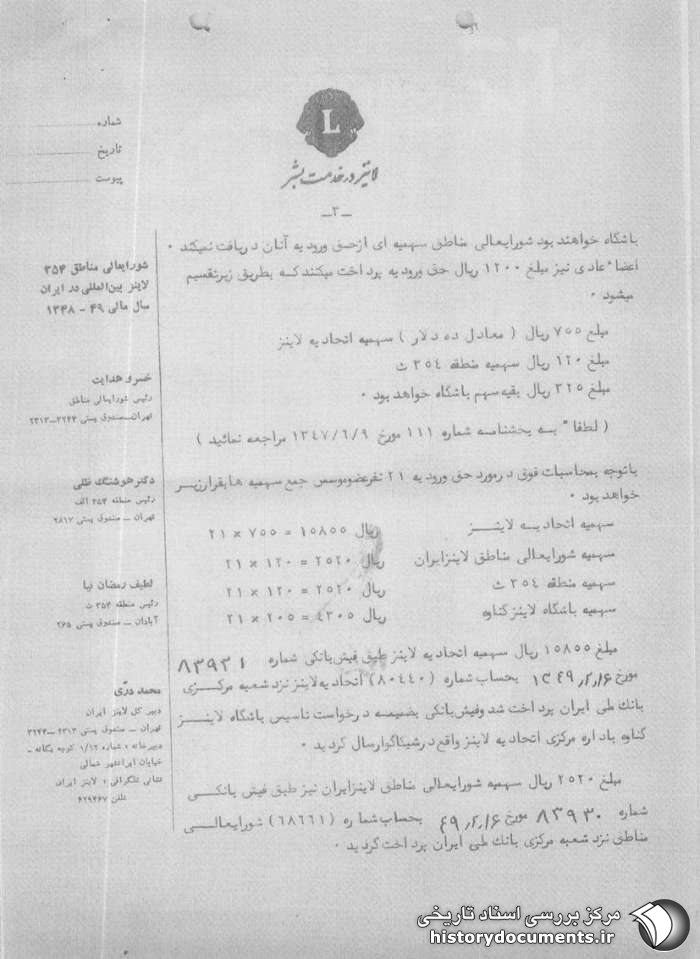 L
لاینز در خدمت بشر
شماره
تاریخ
پیوست
ـ۲ـ
باشگاه خواهند بود شورایعالی مناطق سهمیه ای ازحق ورودیه آنان دریافت نمیکند .
اعضاء عادی نیز مبلغ ۱۲۰۰ ریال حق ورودیه پرداخت میکنند که بطریق زیرتقسیم
میشود .
مبلغ ۷۵۵ ریال ( معادل ده دلار ) سهمیه اتحادیه لاینز
مبلغ ۱۲۰ ریال سهمیه منطقه ۳۵۴ ث
مبلغ ۳۲۵ ریال بقیه سهم باشگاه خواهد بود .
( لطفا" به بخشنامه شماره ۱۱۱ مورخ ۱۳۴۷/۶/۹ مراجعه نمائید )
باتوجه بمحاسبات فوق درمورد حق ورودیه ۲۱ نفرعضوموسس جمع سهمیه هابقرارزیر
خواهد بود .
سهمیه اتحادیه لاینز ریال ۱۵۸۵۵ = ۷۵۵ × ۲۱
سهمیه شورایعالی مناطق لاینزایران ریال ۲۵۲۰ = ۱۲۰ × ۲۱
سهمیه منطقه ۳۵۴ ث ریال ۲۵۲۰ = ۱۲۰ × ۲۱
سهمیه باشگاه لاینزکناوه ریال ۴۳۰۵ = ۲۰۵ × ۲۱
مبلغ ۱۵۸۵۵ ریال سهمیه اتحادیه لاینز طبق فیش بانکی شماره ۸۳۹۳۱
مورخ ۱۳۴۹٫۲٫۱۶ بحساب شماره (۸۰۴۴۰) اتحادیه لاینز نزد شعبه مرکزی
بانک ملی ایران پرداخت شد وفیش بانکی بضمیمه درخواست تاسیس باشگاه لاینز
کناوه باداره مرکزی اتحادیه لاینز واقع درشیکاگوارسال گردید .
مبلغ ۲۵۲۰ ریال سهمیه شورایعالی مناطق لاینزایران نیز طبق فیش بانکی
شماره ۸۳۹۳۰ مورخ ۴۹٫۲٫۱۶ بحساب شماره (۶۸۶۶۱) شورایعالی
مناطق نزد شعبه مرکزی بانک ملی ایران پرداخت گردید .
شورایعالی مناطق ۳۵۴
لاینز بین‌المللی در ایران
سال مالی ۴۹ - ۱۳۴۸
خسرو هدایت
رئیس شورایعالی مناطق
تهران-صندوق پستی ۳۲۴۴-۲۳۱۳
دکتر هوشنگ ظلی
رئیس منطقه ۳۵۴ الف
تهران - صندوق پستی ۲۸۱۷
لطیف رمضان نیا
رئیس منطقه ۳۵۴ ث
آبادان - صندوق پستی ۲۶۵
محمد دری
دبیر کل لاینز ایران
تهران - صندوق پستی ۲۳۱۳-۳۲۴۴
دبیرخانه : شماره ۱/۱۲ کوچه یگانه -
خیابان ایرانشهر شمالی
نشانی تلگرافی : لاینز ایران
تلفن ۶۲۹۴۶۷
مرکز بررسی اسناد تاریخی
historydocuments.ir